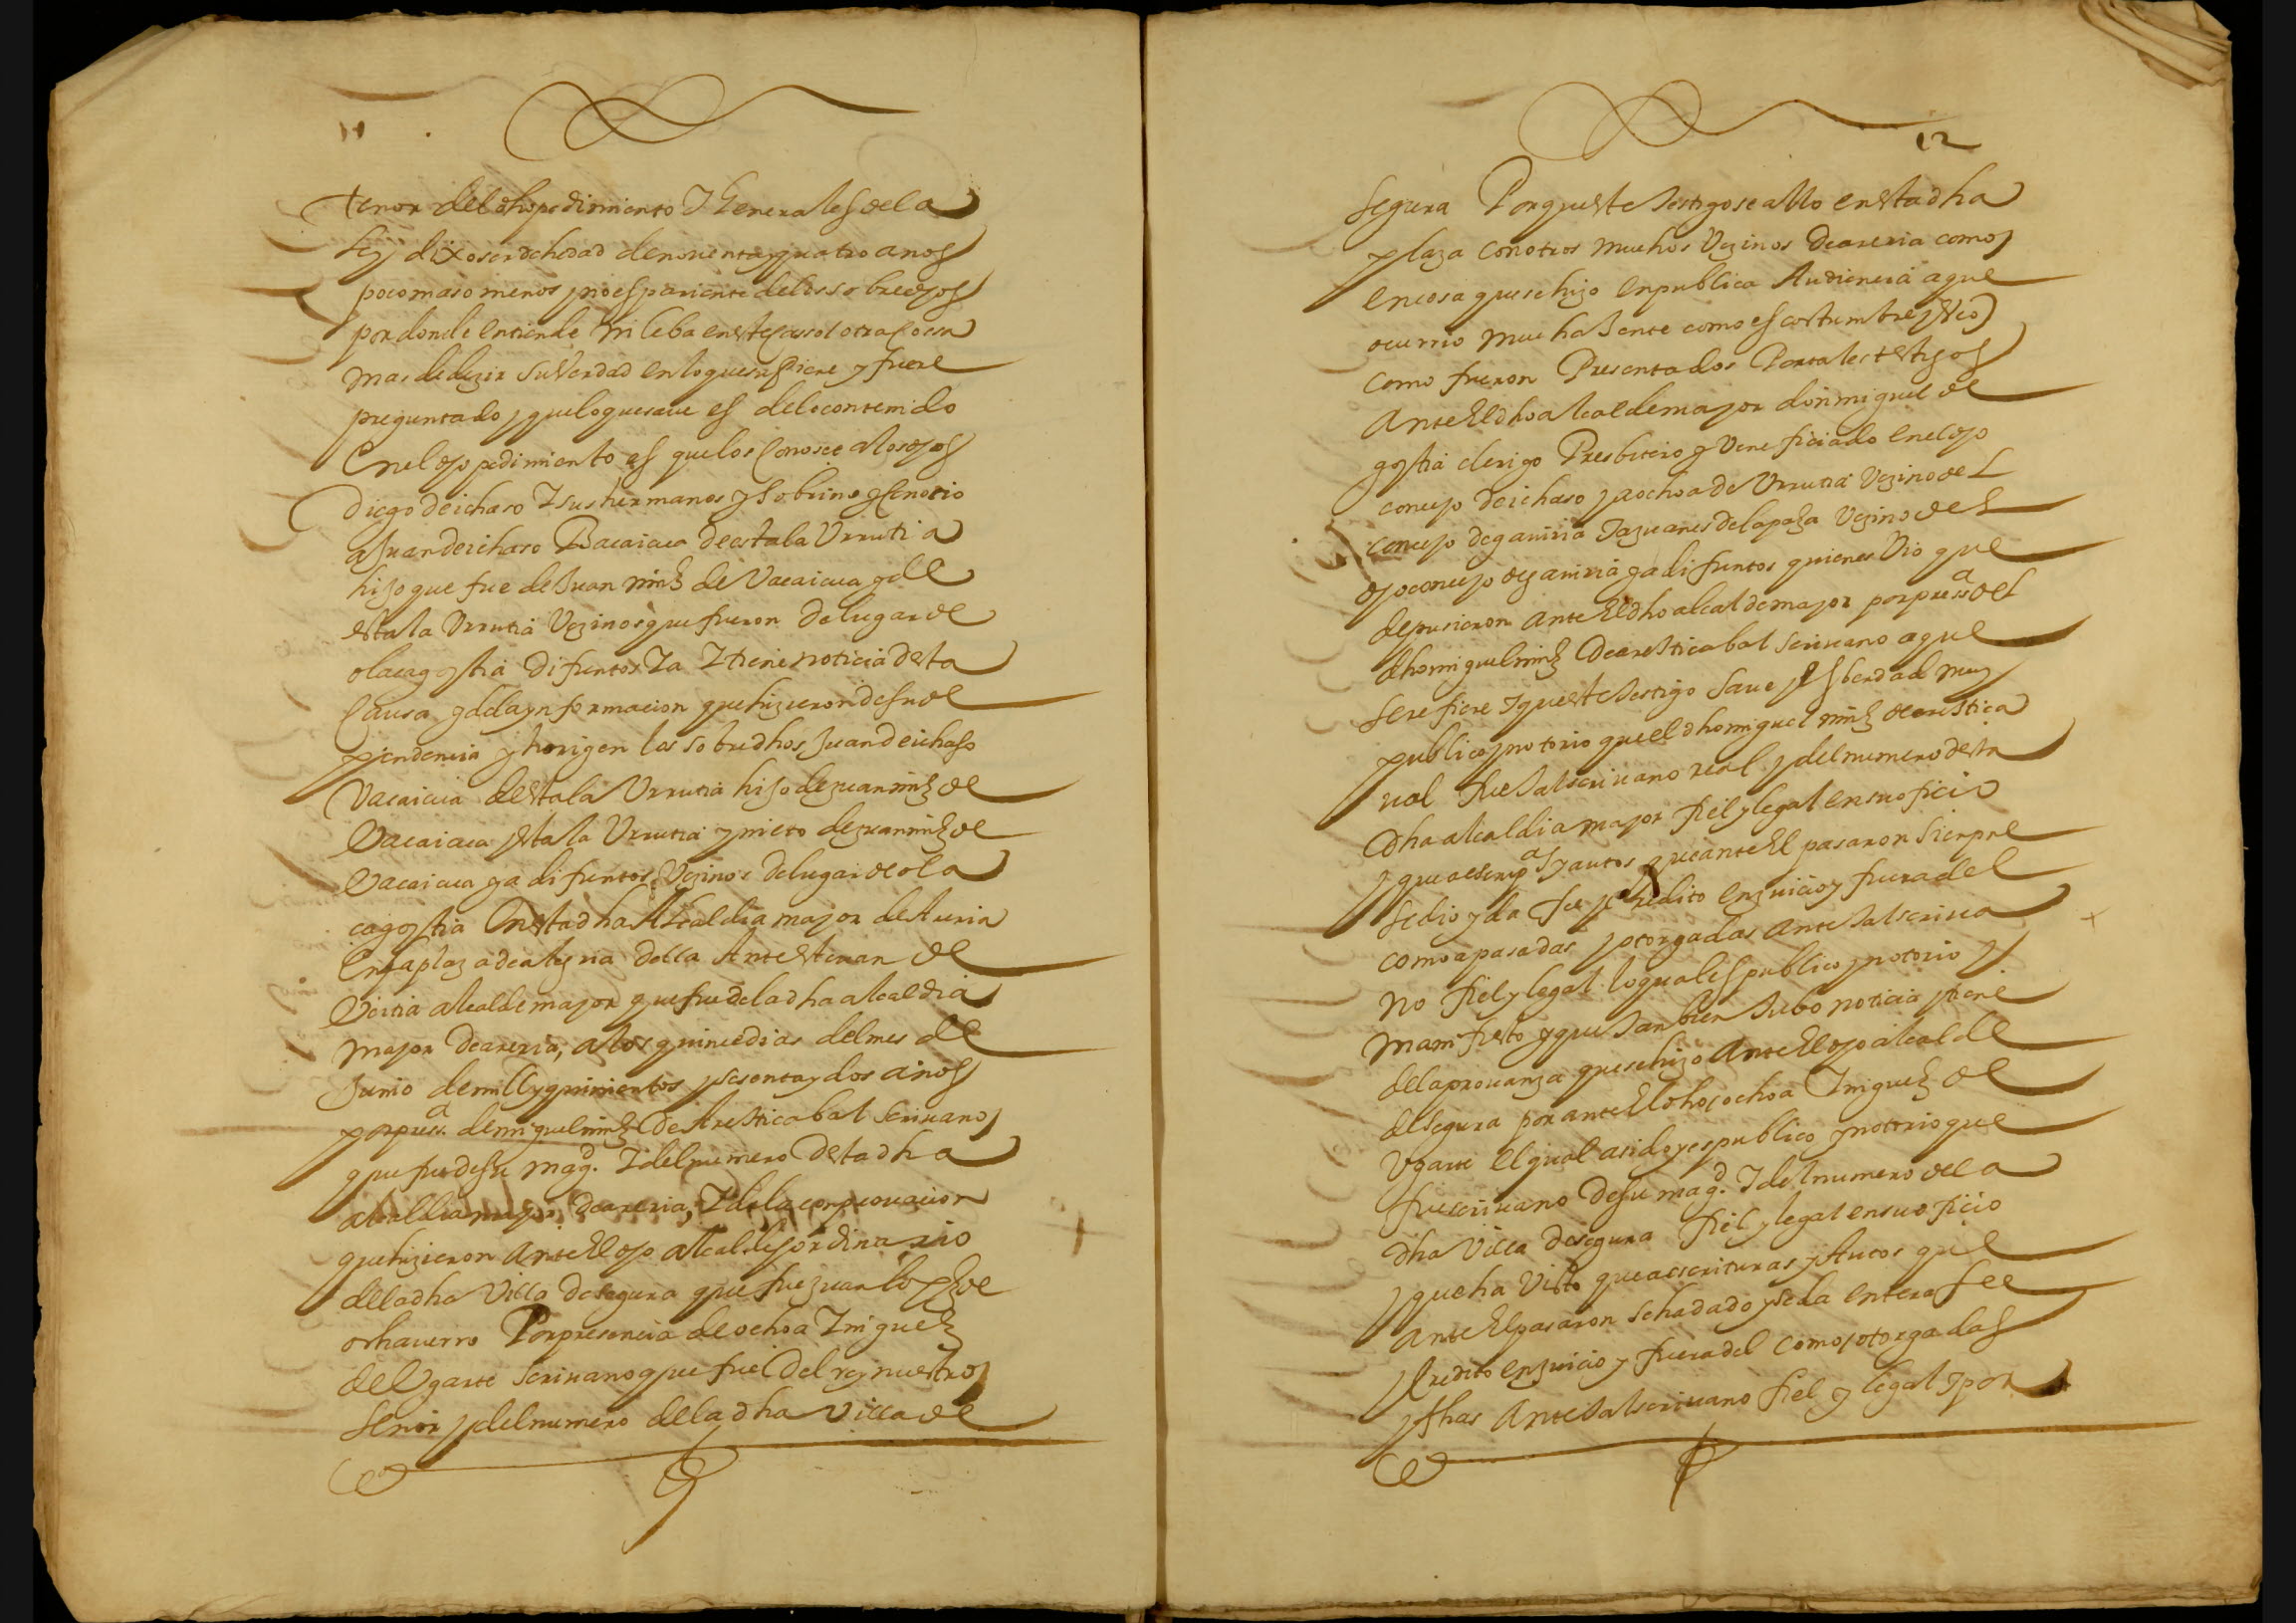 11
tenor del dho pedimiento y Generales de la
ley dixo ser de hedad de noventa y quatro anos
poco mas o menos y no es pariente de los sobredhos
por donde entiende ni le ba en este casso otra cossa
mas de dezir su Verdad en lo que supiere y fuere
preguntado y que lo que save es de lo contenido
en el dho pedimiento es que los conosce a los dhos
diego de ichaso y sus hermanos y sobrino y conocio
a Juan de ichaso Bacaicua de estala Urrutia
hijo que fue de Juan mrnz de Vacaicua y de
estala Urrutia Vezinos que fueron del lugar de
olacagostia difuntos ya y tiene noticia desta
causa y de la ynformacion que hizieron de su de
pendencia y horigen los sobredhos Juan de ichaso
Vacaicua de estala Urrutia hijo de Juan mrnz de
Vacaicua y estala Urrutia y nieto de Juan mrnz de
Vacaicua ya difuntos Vezinos del lugar de ola
cagostia En esta dha Alcaldia mayor de Areria
En la plaza de alegria della Ante estevan de
Vicuia alcalde mayor que fue de la dha alcaldia
mayor de areria, a los quince dias del mes de
Junio de mill y quinientos y sesenta y dos años
por presa de miguel mrnz de Aresticabal scrivano
que fue de su magd. y del numero desta dha
alcaldia mayor de areria, y de la conprovacion
que hizieron Ante El dho alcalde hordinario
de la dha Villa de segura que fue Juan lopez de
orhaverro Por presencia de ochoa yniguez
de Ugarte scrivano que fue del rey nuestro
señor y del numero de la dha villa de
12
segura Porque este testigo se allo en esta dha
plaza con otros muchos Vezinos de areria como
en cosa que se hizo en publica Audiencia a que
ocurrio mucha Jente como es costumbre y Vio
como fueron Presentados Por tales testigos
Ante El dho alcalde mayor don miguel de
gostia clerigo Presbitero y Veneficiado en el dho
concejo de ichaso y a ochoa de Urrutia Vezino del
concejo de gaviria y a Juanes de la plaza Vezino del
dho concejo de gaviria ya difuntos quienes Vio que
depusieron ante El dho alcalde mayor por presa del
dho miguel mrnz de aresticabal scrivano a que
se refiere y que este testigo save y es berdad muy
publico y notorio que el dho miguel mrnz de arestica
val fue tal scrivano real y del numero desta
dha alcaldia mayor fiel y legal en su oficio
y que a escripas y autos que ante El pasaron sienpre
se dio y da fee y credito en Juicio y fuera del
como a pasadas y otorgadas ante tal scriva
no fiel y legal lo qual es publico y notorio y
manifiesto y que tanbien tubo noticia y tiene
de la provanza que se hizo Ante El dho alcalde
de segura por ante El dho ochoa yniguez de
Ugarte el qual a sido y es publico y notorio que
fue scrivano de su magd. y del numero de la
dha Villa de segura fiel y legal en su oficio
y que ha Visto que a escrituras y Autos que
ante El pasaron se ha dado y se da entera fee
y credito en Juicio y fuera del como otorgadas
y fhas Ante tal scrivano fiel y legal y por